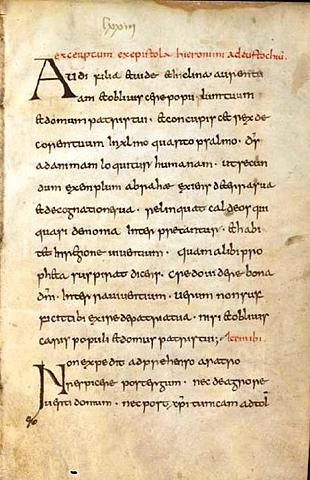 lxxxiii
excerptum ex epistola hieronimi ad eustochiū.
Audi filia et uide et inclina aurem tu
am et obliuiscere populum tuum
et domum patris tui · et concupiscet rex de
corem tuum In xlmo quarto psalmo · dī
ad animam loquitur humanam · ut secun
dum exemplum abrahae exiens de terra sua
et de cognatione sua · relinquat caldeos qui
quasi demonia Interpretantur · et habi
tet In regione uiuentium · quam alibi pro
pheta suspirat dicens · credo uidere bona
dn̄i · In terra uiuentium · uerum non suf
ficit tibi exire de patria tua · nisi obliuis
caris populi et domus patris tui; Item ibi
Non expedit adprehenso aratro
respicere post tergum · nec de agro re
uerti domum · nec post xp̄i tunicam ad tol